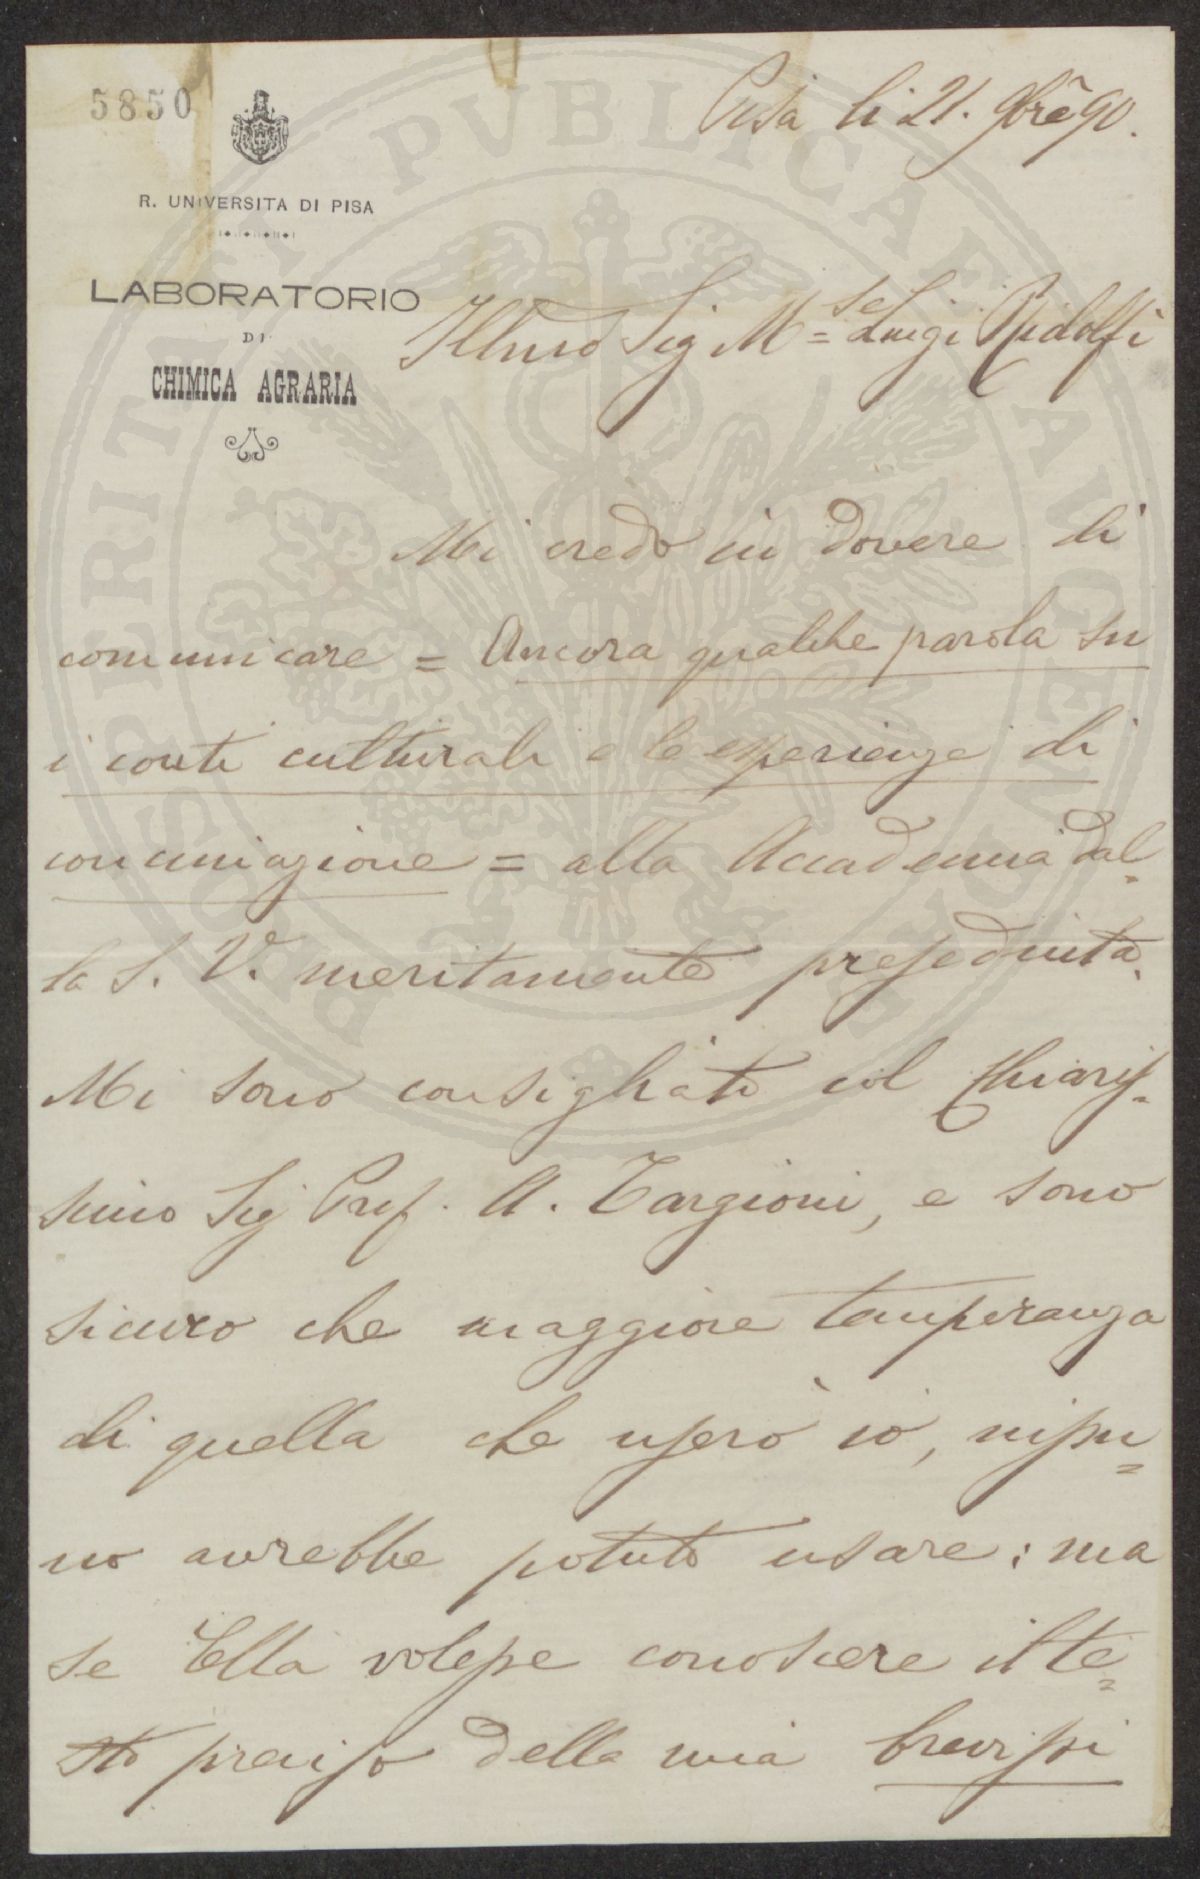 5850
Pisa li 21. 9bre 90.
R. UNIVERSITA DI PISA
LABORATORIO
DI
CHIMICA AGRARIA
Illmo Sig Mse Luigi Ridolfi
Mi credo in dovere di
comunicare = Ancora qualche parola su
i conti culturali e le esperienze di
concimazione = alla Accademia dal-
la S. V. meritamente presedduta.
Mi sono consigliato col Chiaris-
simo Sig Prof. A. Targioni, e sono
sicuro che maggiore temperanza
di quella che userò io, nissu=
no avrebbe potuto usare: ma
se Ella volesse conoscere il te=
sto preciso della mia brevissi
PROSPERITATI PVBLICAE AVGENDAE